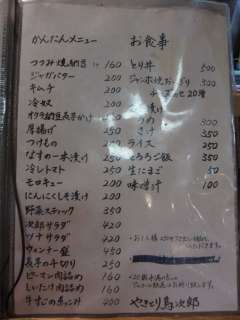 かんたんメニュー
つつみ焼納豆 160
ジャガバター 200
キムチ 200
冷奴 200
オクラ納豆長芋かけ 200
厚揚げ 250
つけもの 200
なすの一本漬け 250
冷しトマト 250
モロキュー 200
にんにくしそ漬け 200
野菜スティック 350
次郎サラダ 420
ツナサラダ 420
ウィンナー盛 450
長芋の千切り 250
ピーマン肉詰め 160
しいたけ肉詰め 160
牛すじの煮込み 400
お食事
とり丼 500
ジャンボ焼おにぎり 300
うめ 350
さけ 350
ライス 250
とろろご飯 350
生たまご 50
味噌汁 100
やきとり鳥次郎